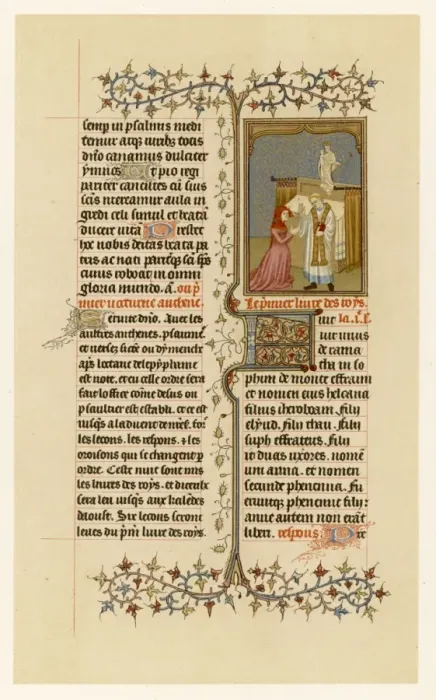 semp in psalmis medi
temur atqz viribz totis
dnō canamus dulciter
ymnos ut pio regi
pariter canentes cū suis
scīs mereamur aula in
gredi celi simul et beatā
ducere vitā Prestet
hoc nobis deitas beata pa
tris ac nati pariterqz scī sps
cuius reboat in omni
gloria mundo. a. ou p̄
mier nocturne anthene.
Servite dnō. Avec les
aultres anthenes. psaumes
et versez sicōe ou dymenche
apˢ loctave de lepyphame
est note. et en celle ordre sera
fait loffice cōme desus ou
psaultier est establi. ce est
iusqˢ a ladvent de nrēs. for
les lecons. les respons. & les
oroisons qui se changent p
ordre. Ceste nuit sont mis
les livres des roys. et durerōt
sera leu iusqˢ aux kalēdes
daoust. Six lecons seront
leues du pm̄ livre des roys.
Le pmier livre des roys.
Fuit vir unus la. i. l.
de rama
tha in so
phim de monte effraim
et nomen eius helcana
filius iheroboam. filij
elyud. filij thau. filij
suph effrateus. Fili
it duas uxores. nomē
uni anna. et nomen
secunde phenenna. Fu
eruntqz phenenne filij:
anne autem non erāt
liberi. respons. Pre